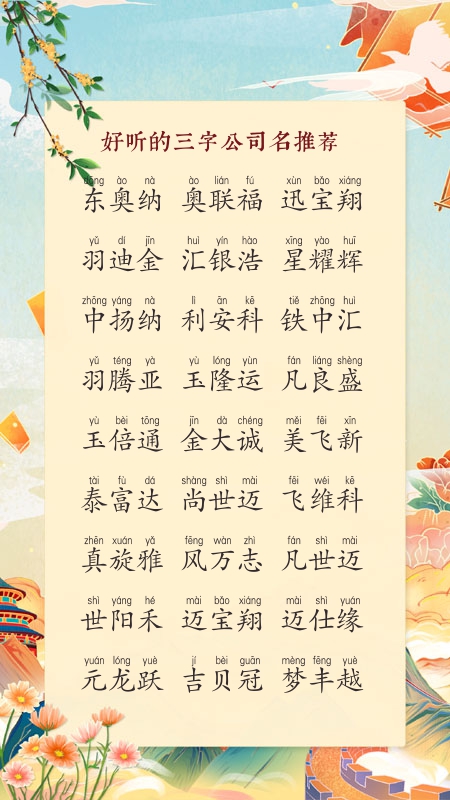 好听的三字公司名推荐
dōng ào nà ào lián fú xùn bǎo xiáng
东奥纳 奥联福 迅宝翔
yǔ dí jīn huì yín hào xīng yào huī
羽迪金 汇银浩 星耀辉
zhōng yáng nà lì ān kē tiě zhōng huì
中扬纳 利安科 铁中汇
yǔ téng yà yù lóng yùn fán liáng shèng
羽腾亚 玉隆运 凡良盛
yù bèi tōng jīn dà chéng měi fēi xīn
玉倍通 金大诚 美飞新
tài fù dá shàng shì mài fēi wéi kē
泰富达 尚世迈 飞维科
zhēn xuán yǎ fēng wàn zhì fán shì mài
真旋雅 风万志 凡世迈
shì yáng hé mài bǎo xiáng mài shì yuán
世阳禾 迈宝翔 迈仕缘
yuán lóng yuè jí bèi guān mèng fēng yuè
元龙跃 吉贝冠 梦丰越